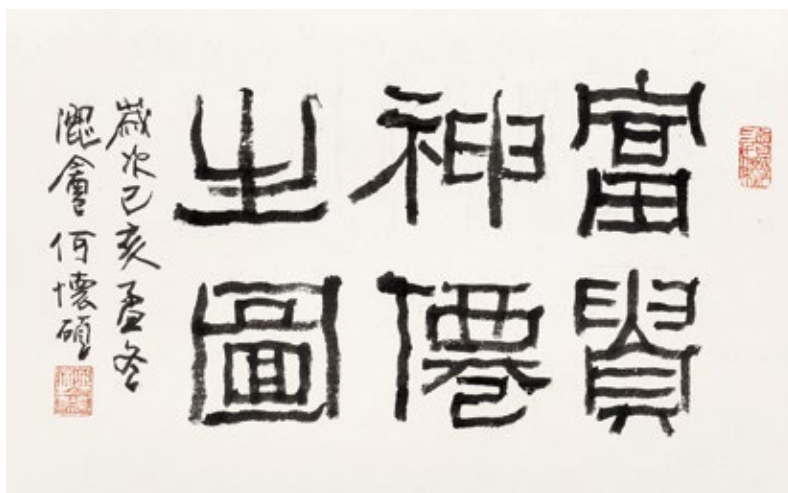 富貴
神僊
之圖
歲次己亥孟冬
澀盦何懷碩